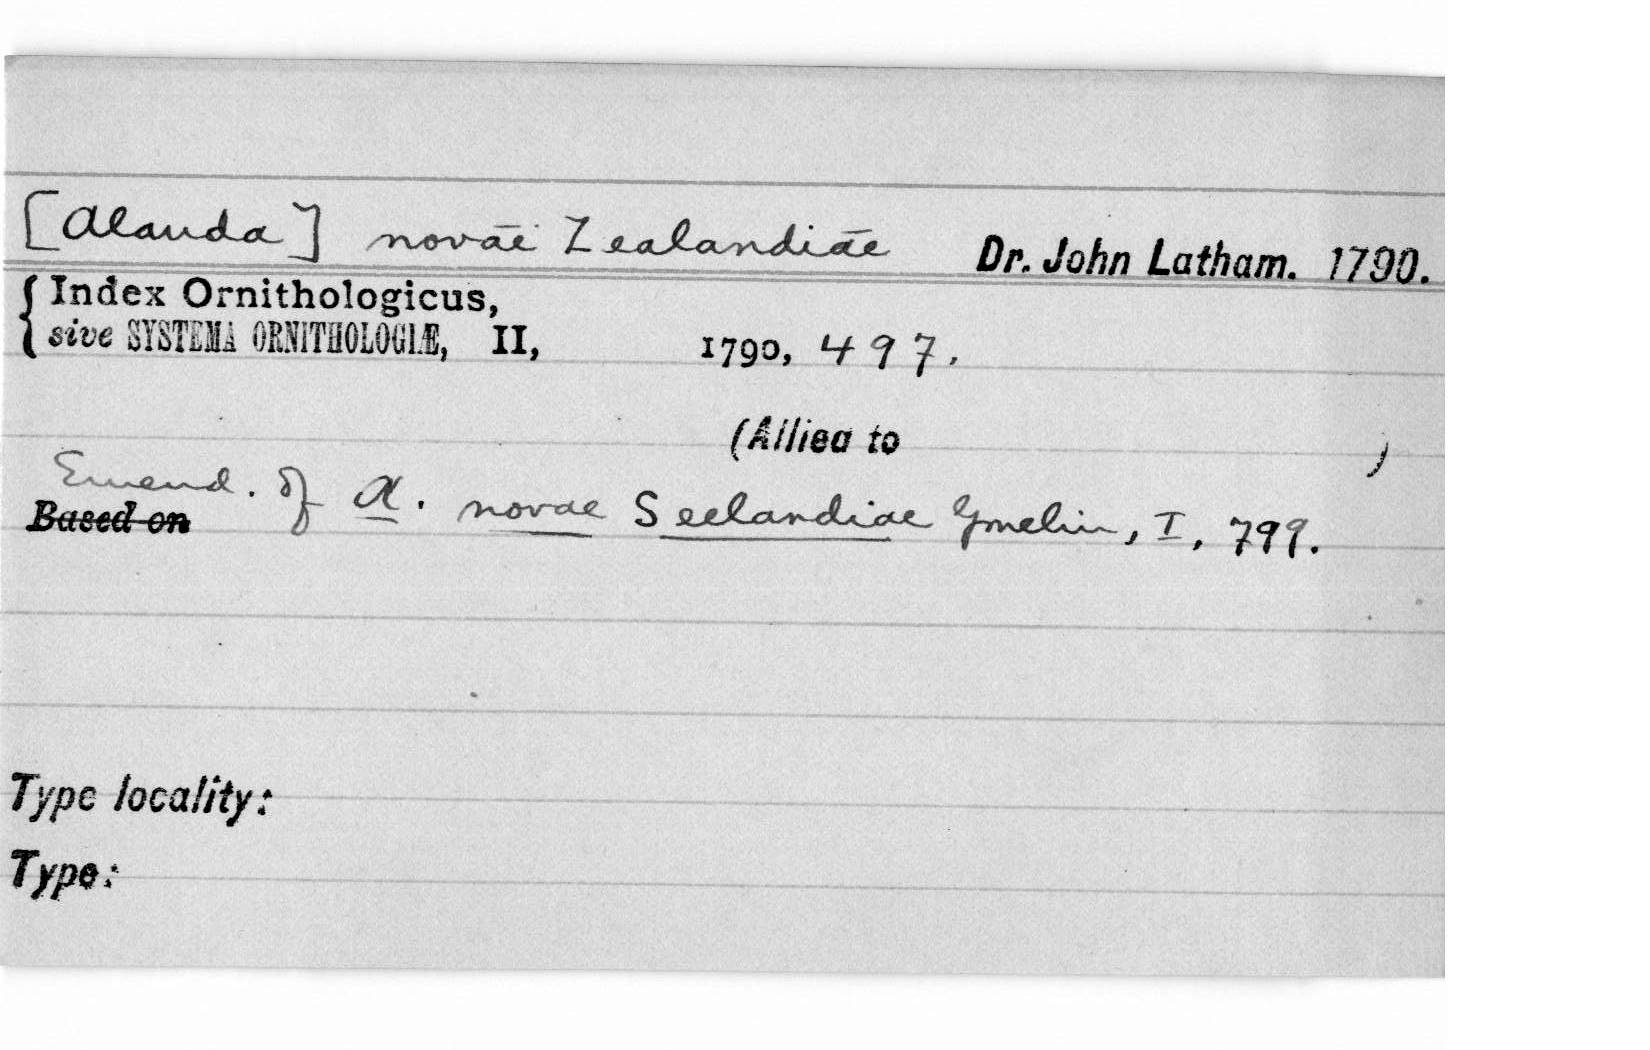 [Alauda] novae Zealandiae Dr. John Latham. 1790.
Index Ornithologicus,
sive SYSTEMA ORNITHOLOGIÆ, II, 1790, 497.
(Allied to )
Emend. of A. novae Seelandiae Gmelin, I, 799.
Based on
Type locality:
Type: